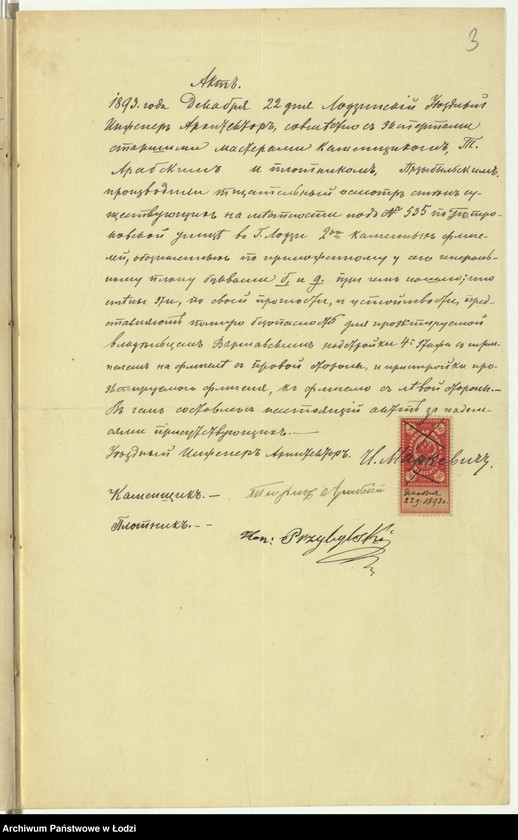 3
Актъ.
1893 года Декабря 22 дня Лодзинскій Уѣздный
Инженеръ Архитекторъ, совмѣстно съ экспертами
старшими мастерами Каменщикомъ, Т.
Арабскимъ и плотникомъ, Пржибыльскимъ
производили тщательный осмотръ стѣнъ су-
ществующихъ на мѣстности подъ № 535 по Петро-
ковской улицѣ въ Г. Лодзи 2хъ каменныхъ флиге-
лей, обозначенныхъ по приложенному у сего генераль-
ному плану буквами б, и д. при чемъ нашли; что
стѣны эти, по своей прочности, и устойчивости, пред-
ставляютъ полную безопасность для проектируемой
владѣльцемъ Варшавскимъ надстройки 4го этажа съ
на флигелѣ съ правой стороны, и пристройки про-
ектируемаго флигеля, къ флигелю съ лѣвой стороны.-
Въ чемъ составленъ настоящій актъ за подпи-
сями присутствующихъ.-
Уѣздный Инженеръ Архитекторъ. И. Маркевичъ.
Каменщикъ.-
Декабря
22 д. 1893 г.
Плотникъ.--
Przybylski
Archiwum Państwowe w Łodzi